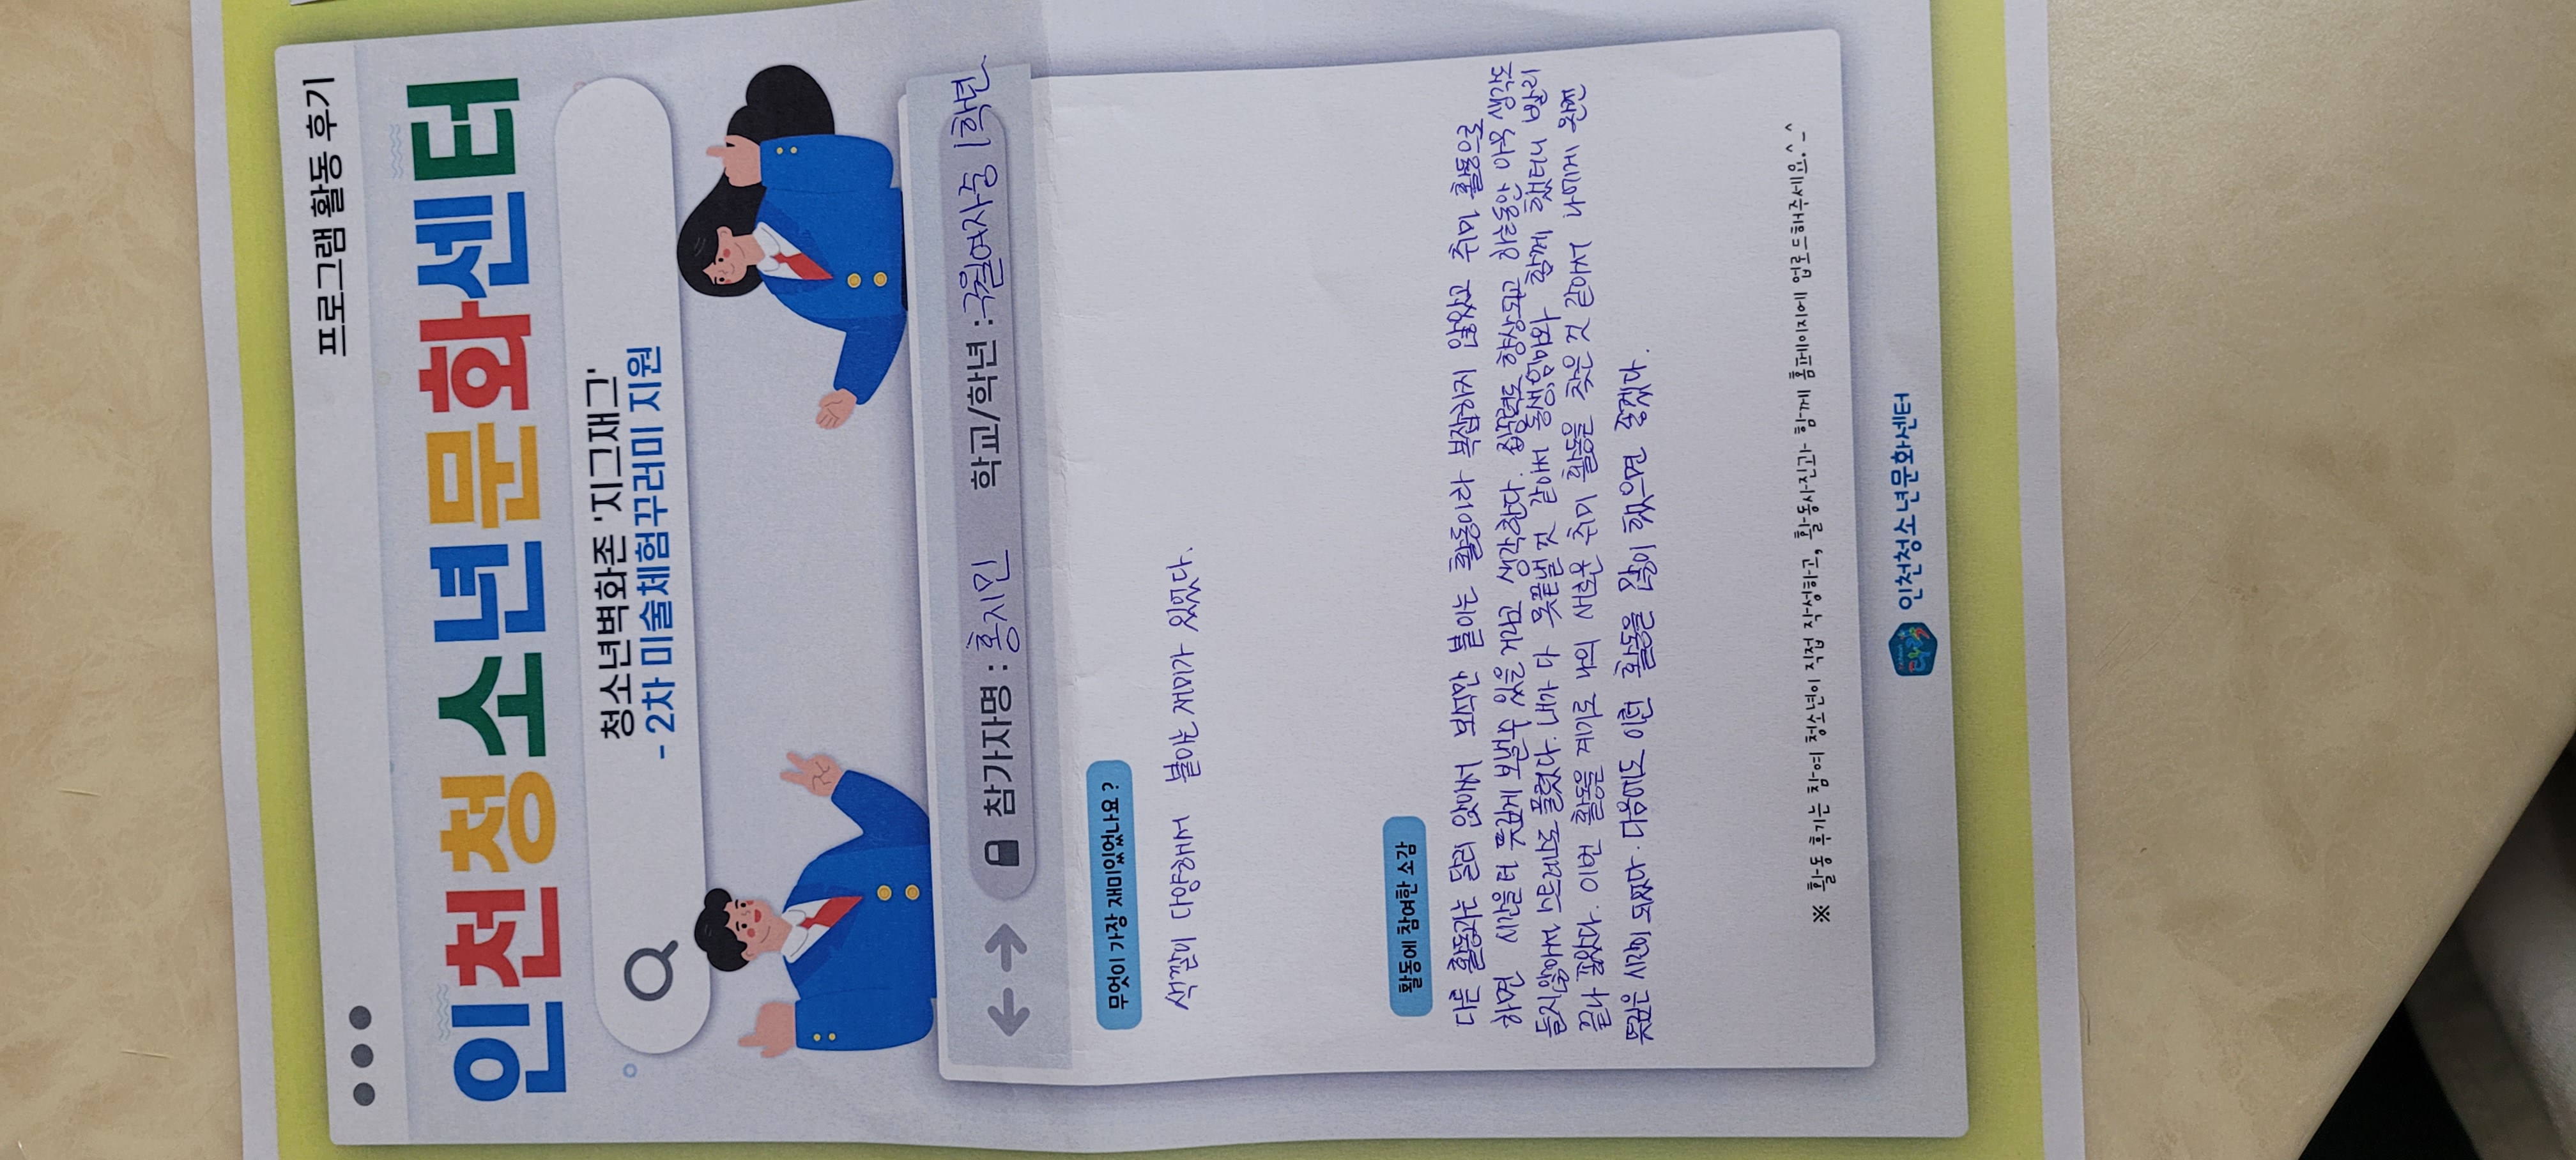 프로그램 활동 후기
인천청소년문화센터
청소년벽화존 '지그재그'
- 2차 미술체험꾸러미 지원
참가자명 : 홍지인 학교/학년 : 구월여자중 1학년
무엇이 가장 재미있었나요?
색깔이 다양해서 붙이는 재미가 있었다.
활동에 참여한 소감
다른 활동과는 달리 앉아서 보석만 붙이는 활동이라 복잡하지 않았고 취미 활동으로
하면 시간을 더 뜻깊게 보낼 수 있을 거라고 생각한다. 집중력도 향상되고 하는동안 아무 생각도
들지않아서 스트레스도 풀렸다. 내가 다 못끝낼 것 같아서 동생,엄마와 함께 했더니 빨리
끝나 좋았다. 이번 활동을 계기로 나의 새로운 취미 활동을 찾은 것 같아서 나에게 완전
뜻깊은 시간이 되었다. 다음에도 이런 활동을 많이 했으면 좋겠다.
※ 활동 후기는 참여 청소년이 직접 작성하고, 활동사진과 함께 홈페이지에 업로드해주세요.^-^
인천청소년문화센터